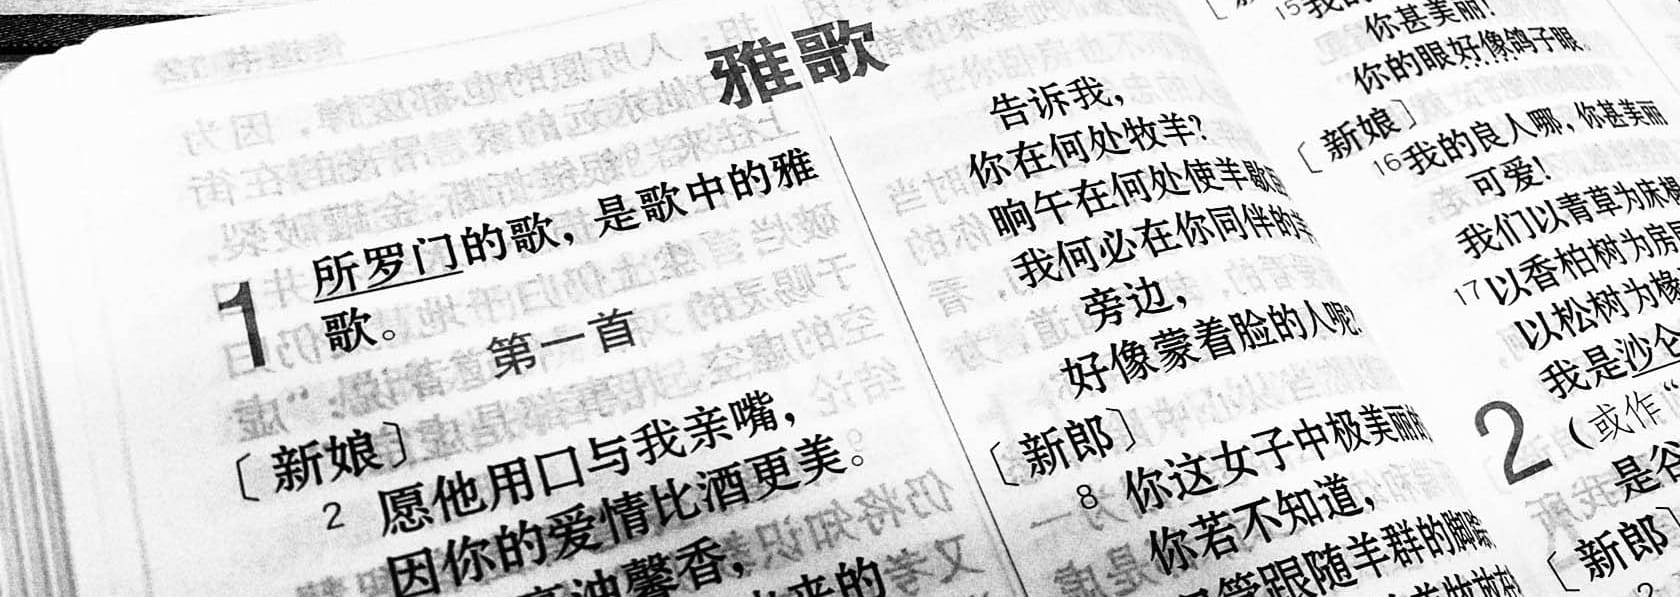 雅歌
1 所罗门的歌，是歌中的雅
歌。
第一首
〔新娘〕
2 愿他用口与我亲嘴，
因你的爱情比酒更美。
膏油馨香，
来的
告诉我，
你在何处牧羊？
晌午在何处使羊歇
我何必在你同伴的羊
旁边，
好像蒙着脸的人呢？
〔新郎〕
8 你这女子中极美丽的
你若不知道，
只管跟随羊群的脚踪
15 我的
你甚美丽！
你的眼好像鸽子眼。
〔新娘〕
16 我的良人哪，你甚美丽
可爱！
我们以青草为床榻
17 以香柏树为房屋
以松树为椽
2 我是沙仑
（或作“
是谷
〔新郎〕
2